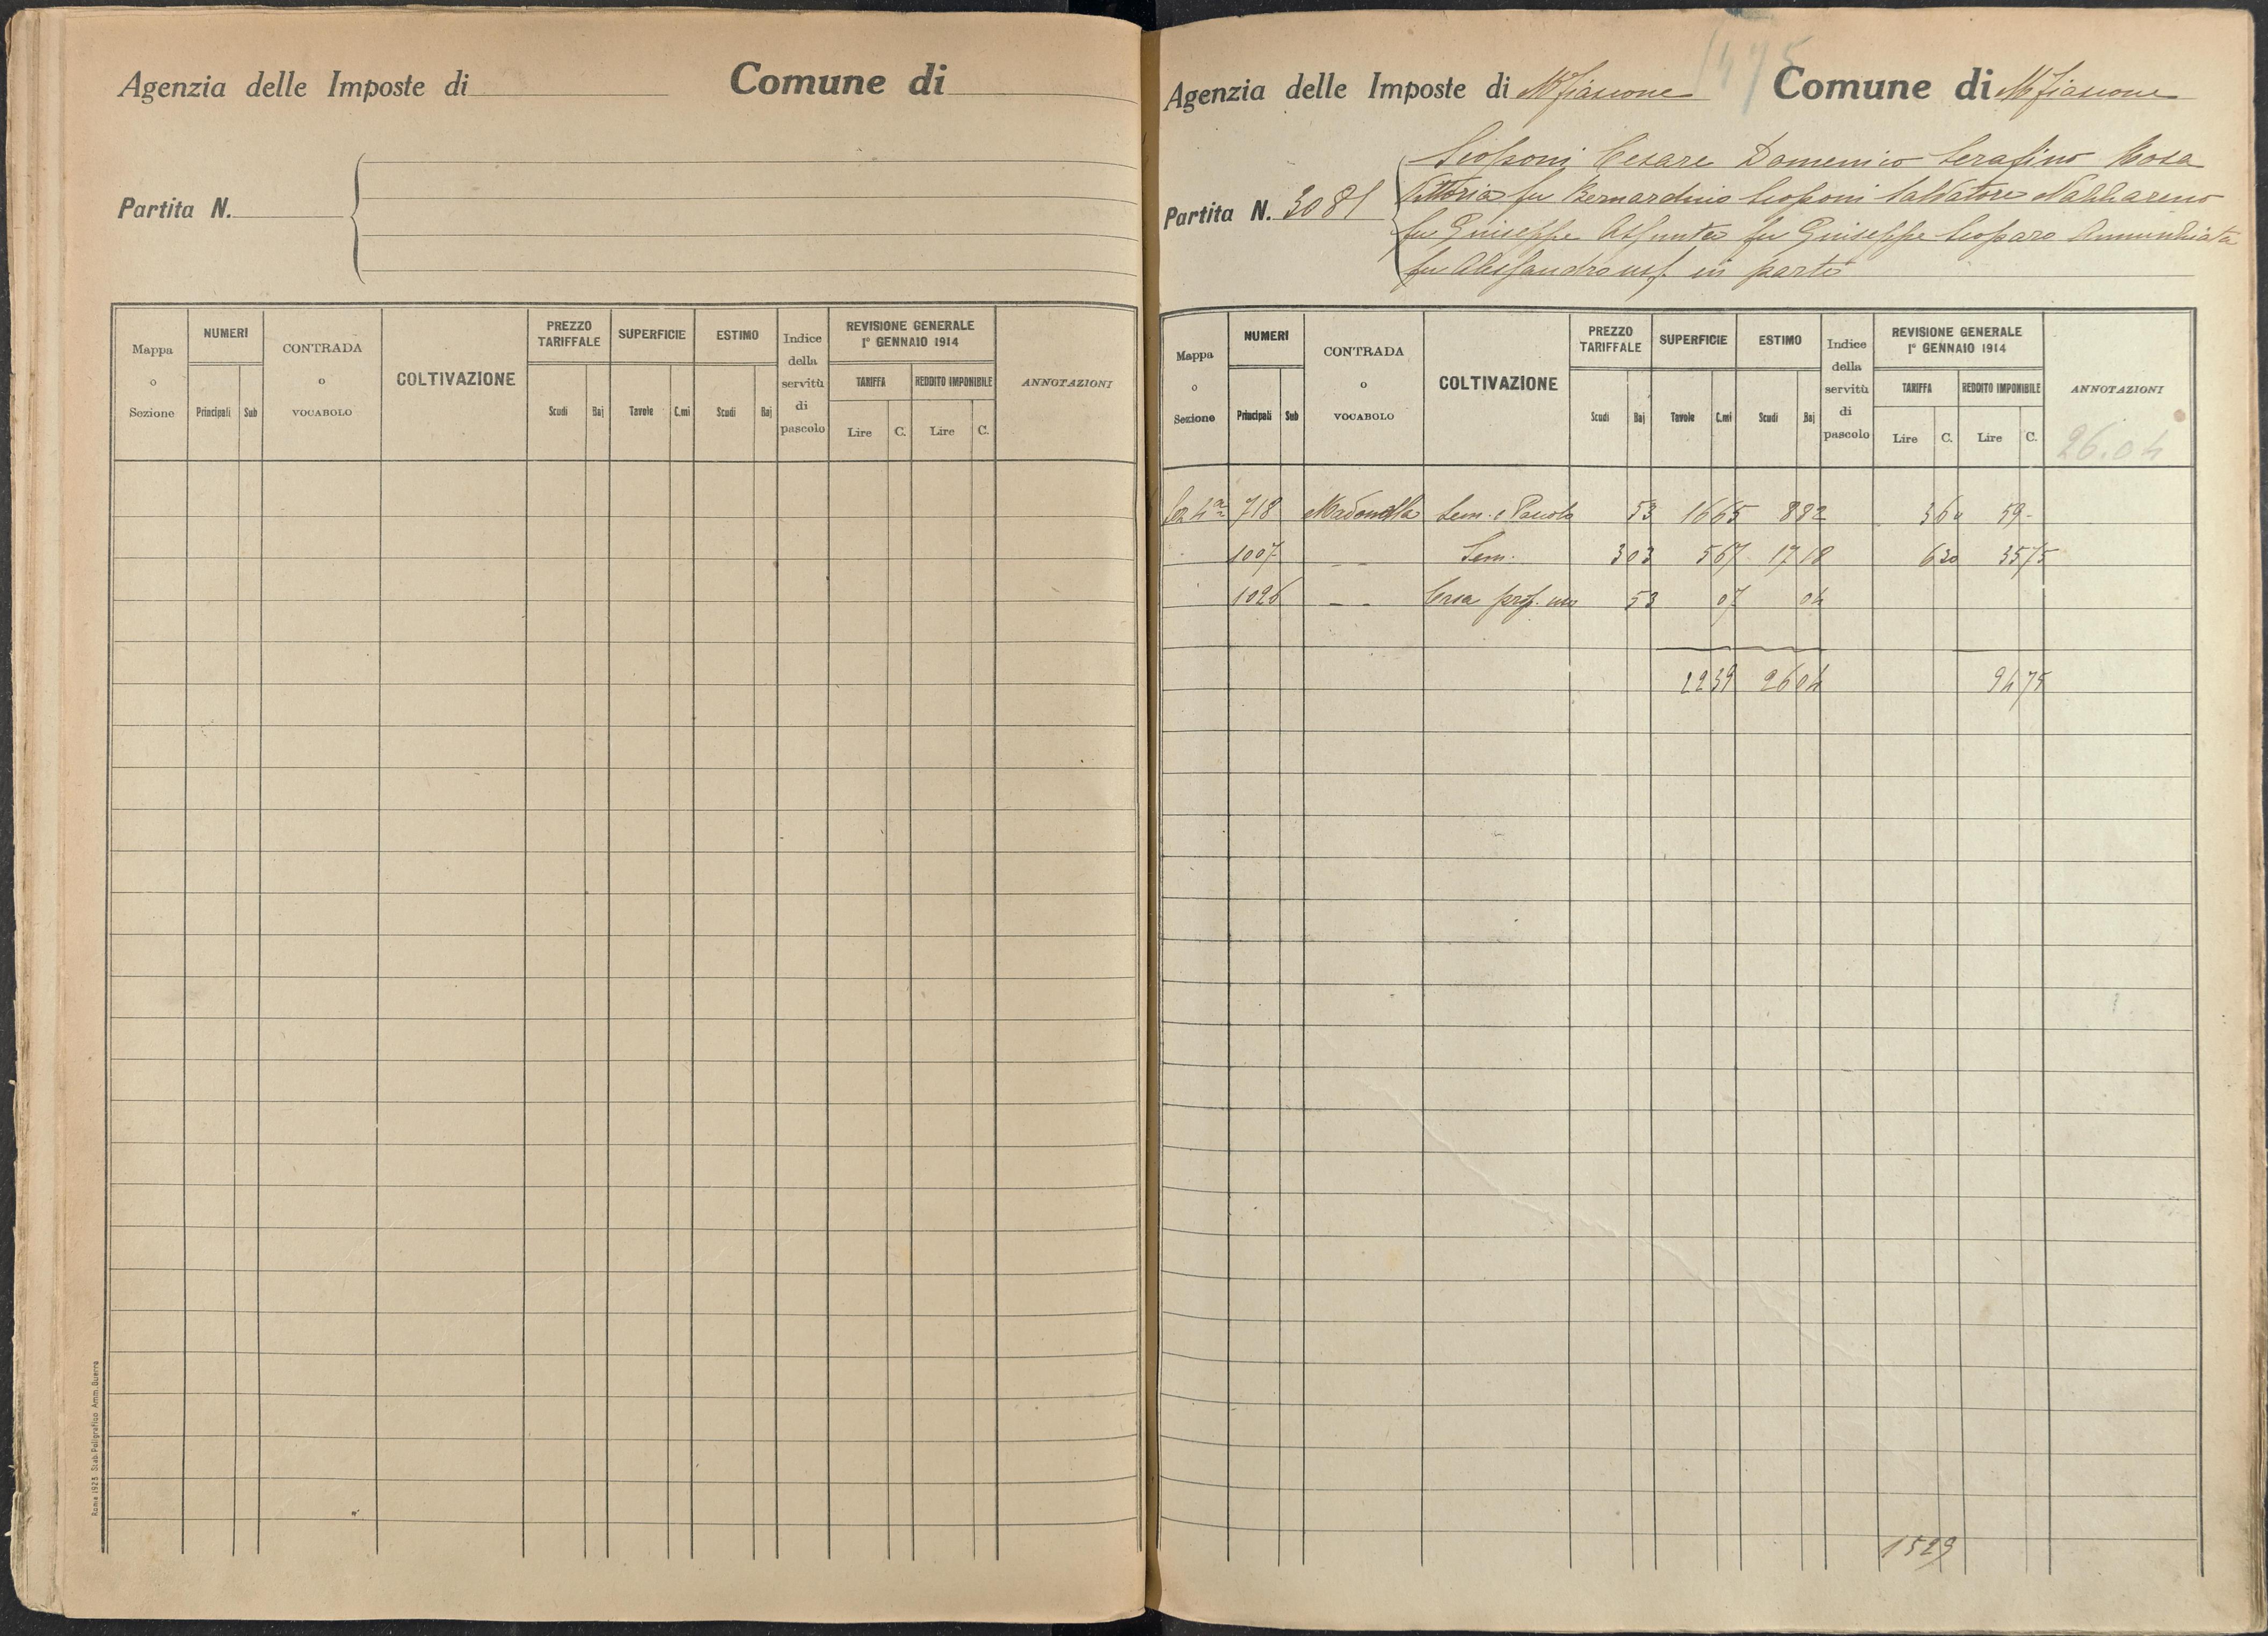 Agenzia delle Imposte di
Comune di
Partita N.
Mappa o Sezione
NUMERI
Principali
Sub
CONTRADA o VOCABOLO
COLTIVAZIONE
PREZZO TARIFFALE
Scudi
Baj
SUPERFICIE
Tavole
C.mi
ESTIMO
Scudi
Baj
Indice della servitù di pascolo
REVISIONE GENERALE 1° GENNAIO 1914
TARIFFA
Lire
C.
REDDITO IMPONIBILE
Lire
C.
ANNOTAZIONI
Roma 1923 Stab. Poligrafico Amm. Guerra
1475
Agenzia delle Imposte di Mfiascone
Comune di Mfiascone
Partita N. 3081
Scopponi Cesare Domenico Serafino Rosa
Vittoria fu Bernardino Scopponi Salvatore Nazzareno
fu Giuseppe Assunta fu Giuseppe Annunziata
fu Alessandro usf. in parte
Mappa o Sezione
NUMERI
Principali
Sub
CONTRADA o VOCABOLO
COLTIVAZIONE
PREZZO TARIFFALE
Scudi
Baj
SUPERFICIE
Tavole
C.mi
ESTIMO
Scudi
Baj
Indice della servitù di pascolo
REVISIONE GENERALE 1° GENNAIO 1914
TARIFFA
Lire
C.
REDDITO IMPONIBILE
Lire
C.
ANNOTAZIONI
26.04
Sez 4ª 718 Madonella Sem. e Pascolo 53 1665 882 360 59 -
1007 — Sem. 303 567 1718 630 3575
1026 — Casa prop. uso 53 07 04
2239 2604 9475
1529